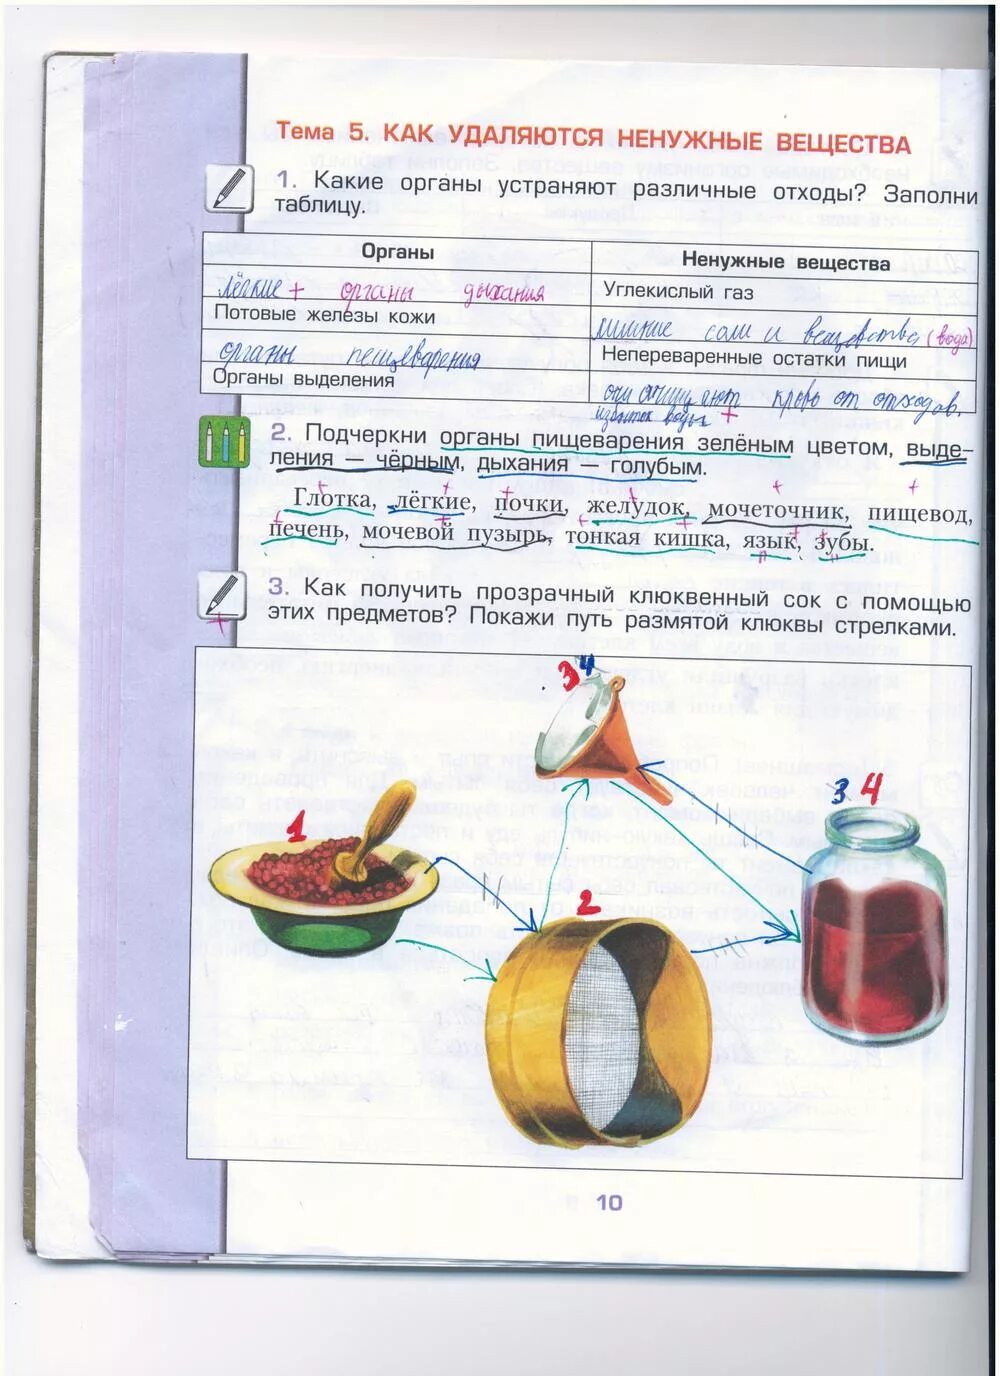 Тема 5. КАК УДАЛЯЮТСЯ НЕНУЖНЫЕ ВЕЩЕСТВА
1. Какие органы устраняют различные отходы? Заполни
таблицу.
Органы Ненужные вещества
лёгкие + органы дыхания Углекислый газ
Потовые железы кожи лишние соли и вещевства (вода)
органы пещеварения Непереваренные остатки пищи
Органы выделения они очищают кровь от отходов.
избыток воды +
2. Подчеркни органы пищеварения зелёным цветом, выде-
ления – чёрным, дыхания – голубым.
Глотка, лёгкие, почки, желудок, мочеточник, пищевод,
печень, мочевой пузырь, тонкая кишка, язык, зубы.
3. Как получить прозрачный клюквенный сок с помощью
этих предметов? Покажи путь размятой клюквы стрелками.
3 4
3 4
1
2
10